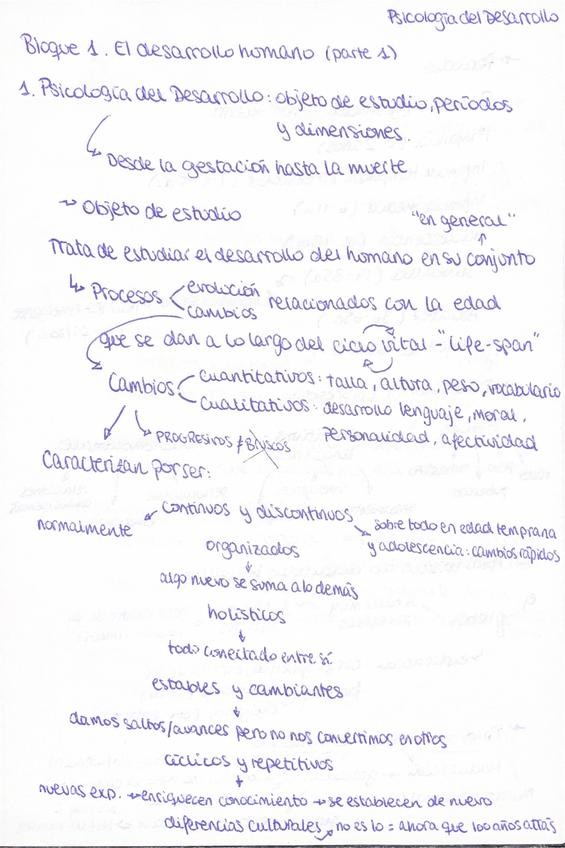 Psicología del Desarrollo
Bloque 1. El desarrollo humano (parte 1)
1. Psicología del Desarrollo: objeto de estudio, períodos
y dimensiones.
↳ Desde la gestación hasta la muerte
→ Objeto de estudio
"en general"
Trata de estudiar el desarrollo del humano en su conjunto
↳ Procesos < evolución
cambios
relacionados con la edad
que se dan a lo largo del ciclo vital - "life-span"
Cambios < Cuantitativos: talla, altura, peso, vocabulario
Cualitativos: desarrollo lenguaje, moral,
personalidad, afectividad
↳ PROGRESIVOS ≠ BRUSCOS
Caracterizan por ser:
continuos y discontinuos
normalmente
sobre todo en edad temprana
y adolescencia: cambios rápidos
organizados
↓
algo nuevo se suma a lo demás
holísticos
↓
todo conectado entre sí
estables y cambiantes
↓
damos saltos/avances pero no nos convertimos en otros
cíclicos y repetitivos
↓
nuevas exp. → enriquecen conocimiento → se establecen de nuevo
diferencias culturales → no es lo = ahora que 100 años atrás